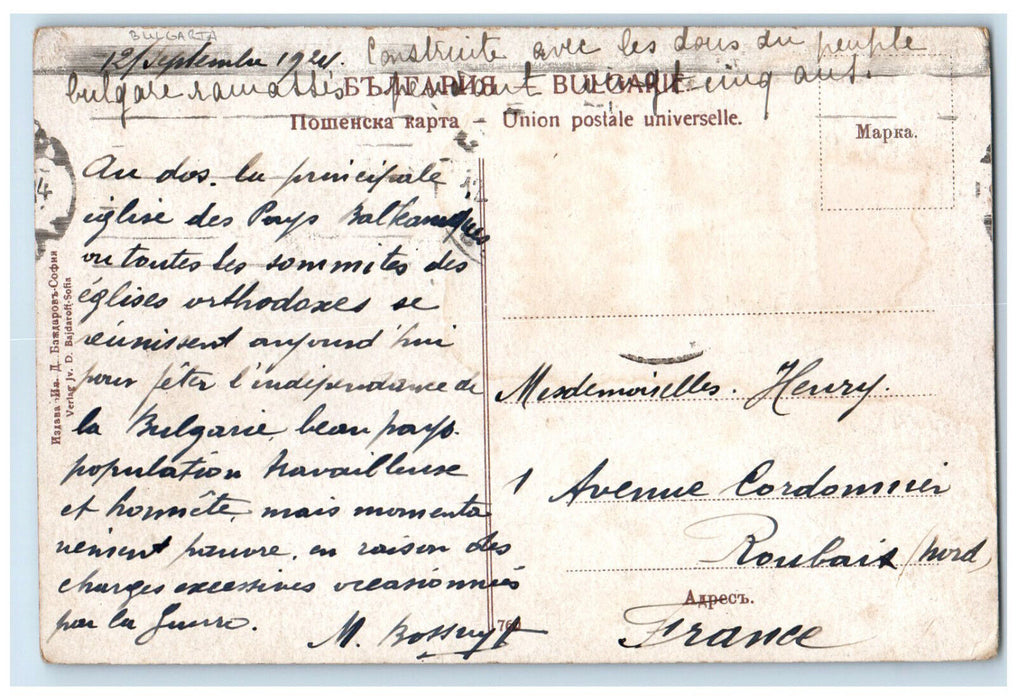 BULGARIA
12/Septembre 1924. Construite avec les dons du peuple
bulgare ramassés pendant vingt-cinq ans.
БЪЛГАРИЯ – BULGARIE.
Пошенска карта – Union postale universelle.
Марка.
Au dos. la principale
église des Pays Balkaniques
ou toutes les sommites des
églises orthodoxes se
réunissent aujourd'hui
pour fêter l'indépendance de
la Bulgarie, beau pays.
population travailleuse
et honnête, mais momenta
nément pauvre, en raison des
charges excessives occasionnés
par la Guerre.
M. Bossuyt
Издава Ив. Д. Баждаровъ-София
Verlag Jv. D. Bajdaroff-Sofia
Mesdemoiselles. Henry.
1 Avenue Cordonnier
Roubaix (Nord)
Адресъ.
France